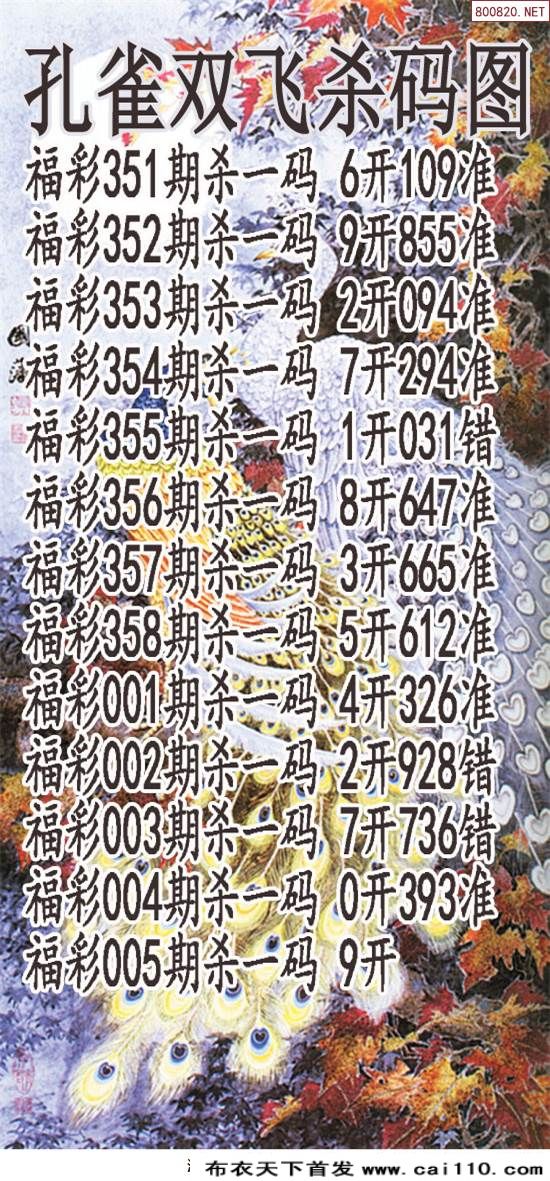 800820.NET
孔雀双飞杀码图
福彩351期杀一码 6开109准
福彩352期杀一码 9开855准
福彩353期杀一码 2开094准
福彩354期杀一码 7开294准
福彩355期杀一码 1开031错
福彩356期杀一码 8开647准
福彩357期杀一码 3开665准
福彩358期杀一码 5开612准
福彩001期杀一码 4开326准
福彩002期杀一码 2开928错
福彩003期杀一码 7开736错
福彩004期杀一码 0开393准
福彩005期杀一码 9开
布衣天下首发 www.cai110.com